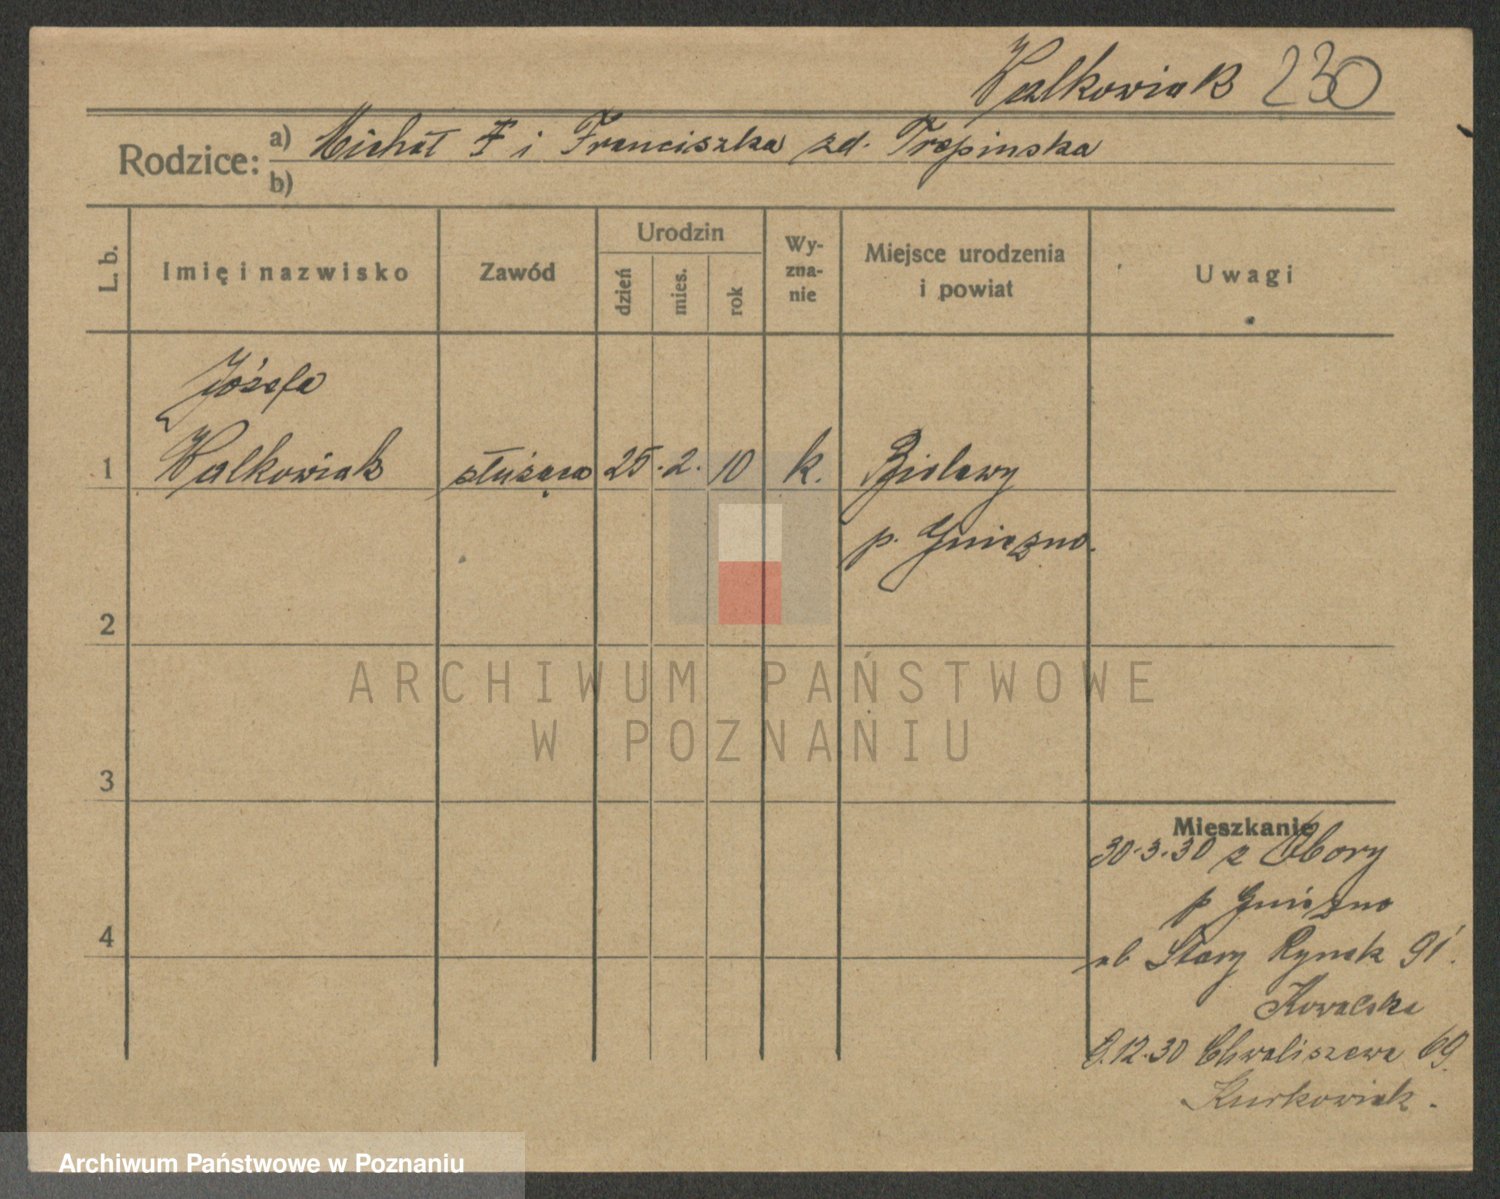 Walkowiak 230
Rodzice: a) Michał i Franciszka zd. Trepinska
b)
L. b.
Imię i nazwisko
Zawód
Urodzin
dzień
mies.
rok
Wy-
zna-
nie
Miejsce urodzenia
i powiat
Uwagi
Józefa
1 Walkowiak służąca 25. 2. 10 k. Bielawy
p. Gniezno.
2
3
4
Mieszkanie
30.3.30 z Obory
p Gniezno
ul Stary Rynek 91.
Kowalska
9.12.30 Chwaliszewo 69.
Kurkowiak.
ARCHIWUM PAŃSTWOWE
W POZNANIU
Archiwum Państwowe w Poznaniu